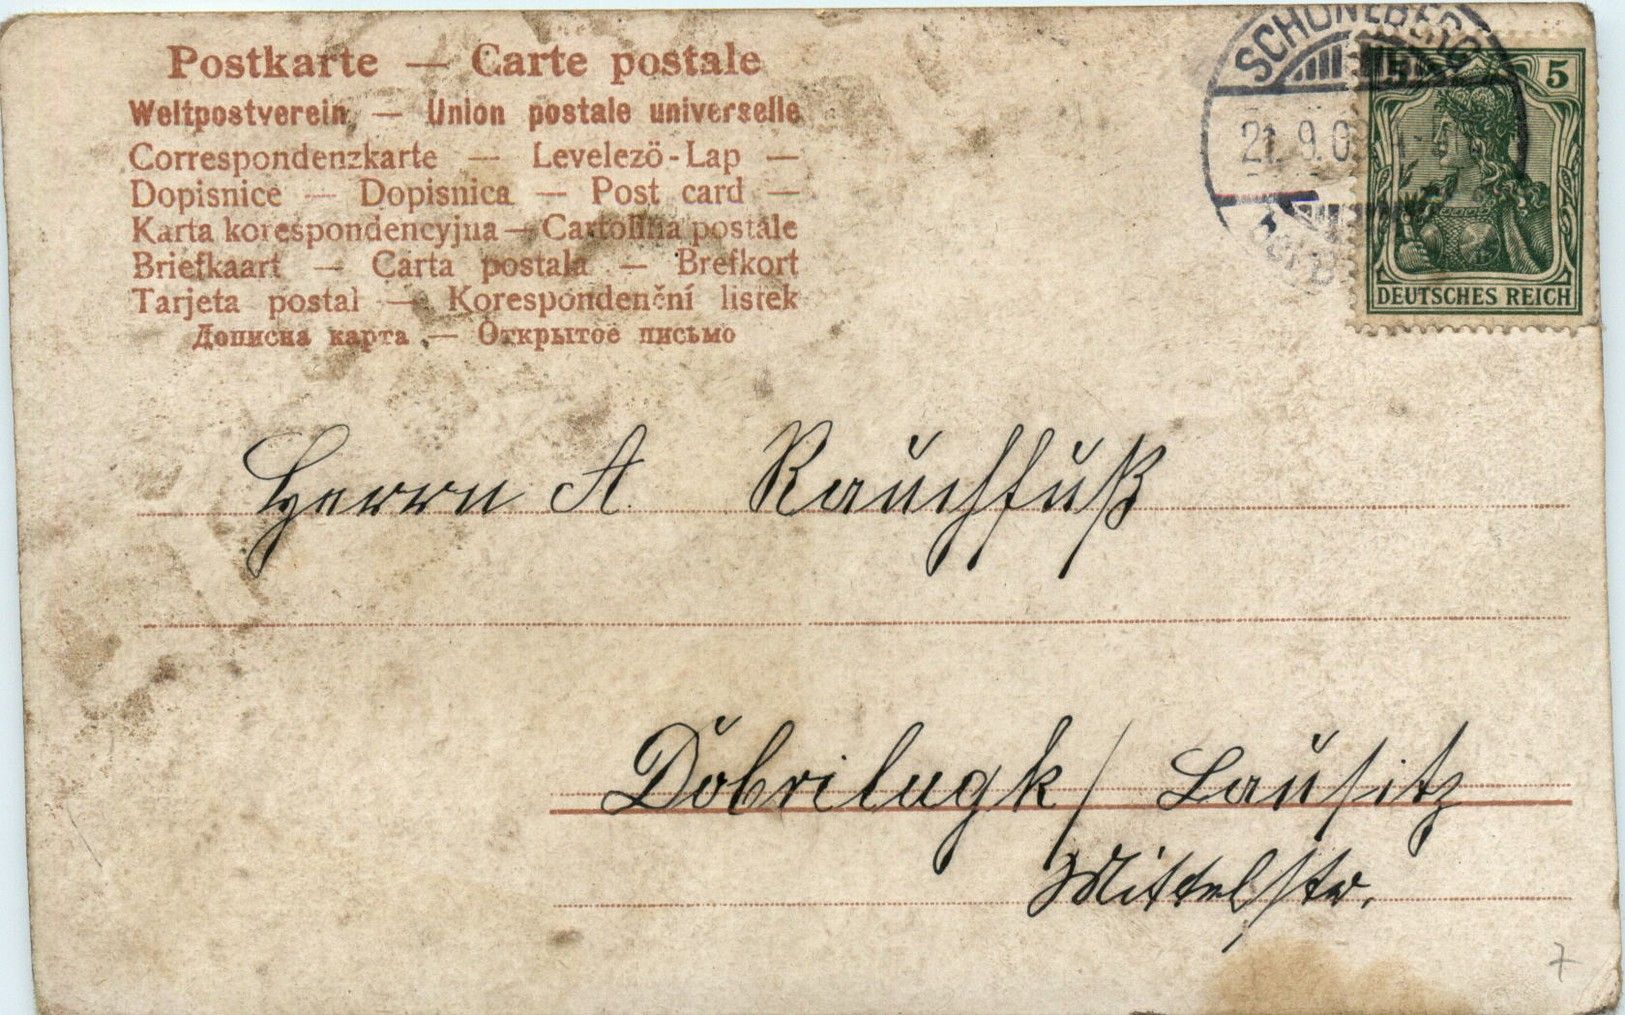 Postkarte — Carte postale
Weltpostverein — Union postale universelle
Correspondenzkarte — Levelező-Lap —
Dopisnice — Dopisnica — Post card —
Karta korespondencyjna — Cartolina postale
Briefkaart — Carta postala — Brefkort
Tarjeta postal — Korespondenční listek
Дописна карта — Открытое письмо
SCHÖNEBERG
21.9.0
5
DEUTSCHES REICH
Herrn A. Rauchfuß
Döbrilugk / Lausitz
Mittelstr.
7